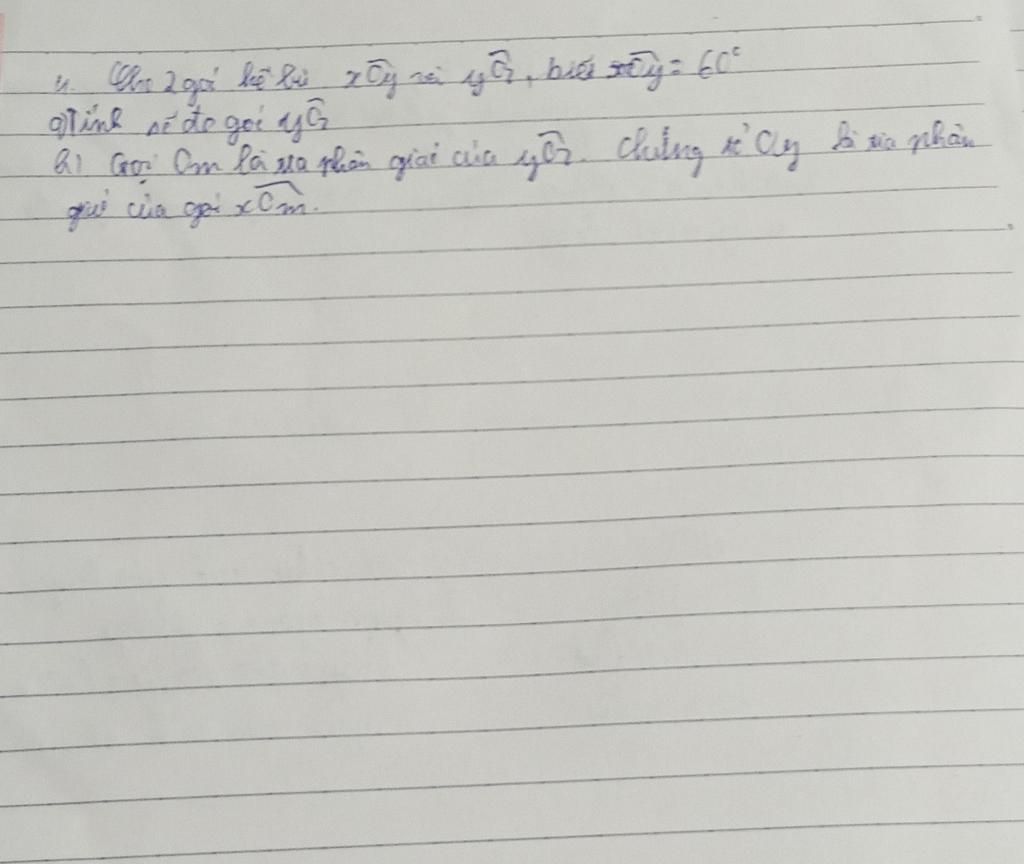 4. Cho 2 góc kề bù xOy và yOz, biết xOy = 60°
a) Tính số đo góc yOz
b) Gọi Om là tia phân giác của yOz. Chứng tỏ Oy là tia phân
giác của góc xOm.